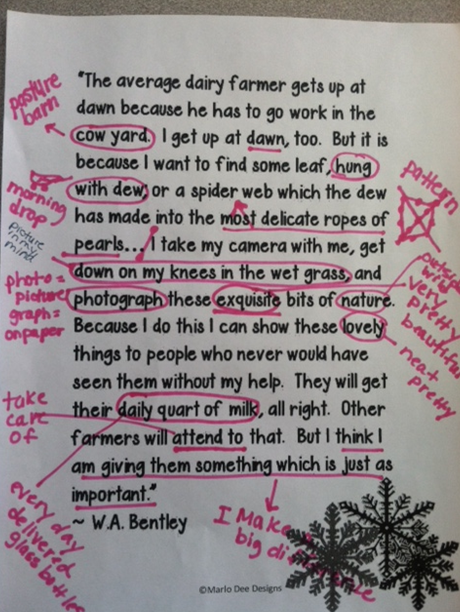 "The average dairy farmer gets up at
dawn because he has to go work in the
cow yard. I get up at dawn, too. But it is
because I want to find some leaf, hung
with dew; or a spider web which the dew
has made into the most delicate ropes of
pearls... I take my camera with me, get
down on my knees in the wet grass, and
photograph these exquisite bits of nature.
Because I do this I can show these lovely
things to people who never would have
seen them without my help. They will get
their daily quart of milk, all right. Other
farmers will attend to that. But I think I
am giving them something which is just as
important."
~ W.A. Bentley
©Marlo Dee Designs
pasture
barn
morning
drop
picture
in my
mind
photo =
picture
graph =
on paper
take
care
of
every day
delivered
glass bottles
pattern
very
pretty
beautiful
neat
pretty
I Make
big